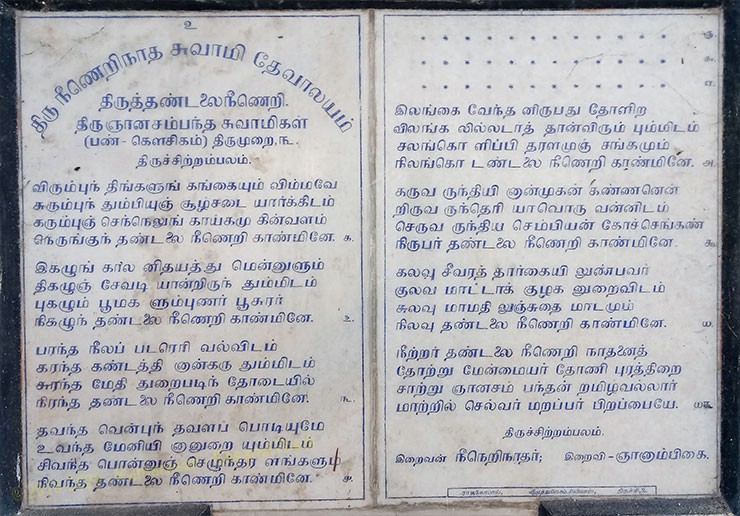 உ
திரு நீணெறிநாத சுவாமி தேவாலயம்
திருத்தண்டலைநீணெறி.
திருஞானசம்பந்த சுவாமிகள்
(பண்- கௌசிகம்) திருமுறை.௩.
திருச்சிற்றம்பலம்.
விரும்புந் திங்களுங் கங்கையும் விம்மவே
சுரும்புந் தும்பியுஞ் சூழ்சடை யார்க்கிடம்
கரும்புஞ் செந்நெலுங் காய்கமு கின்வளம்
நெருங்குந் தண்டலை நீணெறி காண்மினே. ௧.
இகழுங் காலன் நிதயத்து மென்னுளும்
திகழுஞ் சேவடி யான்றிருந் தும்மிடம்
புகழும் பூமக ளும்புணர் பூசுரர்
நிகழுந் தண்டலை நீணெறி காண்மினே. ௨.
பரந்த நீலப் படரெரி வல்விடம்
கரந்த கண்டத்தி னான்கரு தும்மிடம்
சுரந்த மேதி துறைபடிந் தோடையில்
நிரந்த தண்டலை நீணெறி காண்மினே. ௩.
தவந்த வென்புந் தவளப் பொடியுமே
உவந்த மேனியி னானுறை யும்மிடம்
சிவந்த பொன்னுஞ் செழுந்தர ளங்களும்
நிவந்த தண்டலை நீணெறி காண்மினே. ௪.
௫.
௬.
௭.
இலங்கை வேந்த னிருபது தோளிற
விலங்க லில்லடர்த் தான்விரும் பும்மிடம்
சலங்கொ ளிப்பி தரளமுஞ் சங்கமும்
நிலங்கொ டண்டலை நீணெறி காண்மினே. ௮.
கருவ ருந்தியி னான்முகன் கண்ணனென்
றிருவ ருந்தெரி யாவொரு வன்னிடம்
செருவ ருந்திய செம்பியன் கோச்செங்கண்
நிருபர் தண்டலை நீணெறி காண்மினே. ௯.
கலவு சீவரத் தார்கையி லுண்பவர்
குலவ மாட்டாக் குழக னுறைவிடம்
சுலவு மாமதி லுஞ்சுதை மாடமும்
நிலவு தண்டலை நீணெறி காண்மினே. ௰.
நீற்றர் தண்டலை நீணெறி நாதனைத்
தோற்று மேன்மையர் தோணி புரத்திறை
சாற்று ஞானசம் பந்தன் றமிழ்வல்லார்
மாற்றில் செல்வர் மறப்பர் பிறப்பையே. ௰௧.
திருச்சிற்றம்பலம்.
இறைவன் நீநெறிநாதர்; இறைவி -ஞானாம்பிகை.